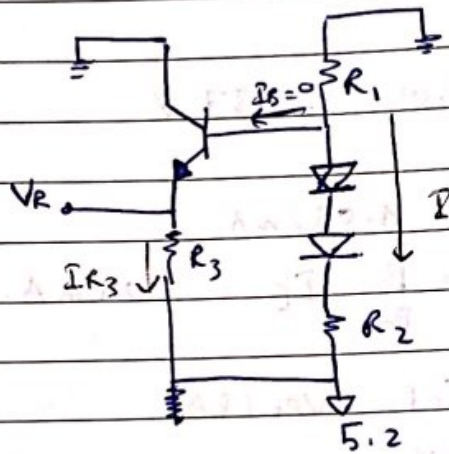 IB=0
R1
VR
I
IR3
R3
R2
5.2